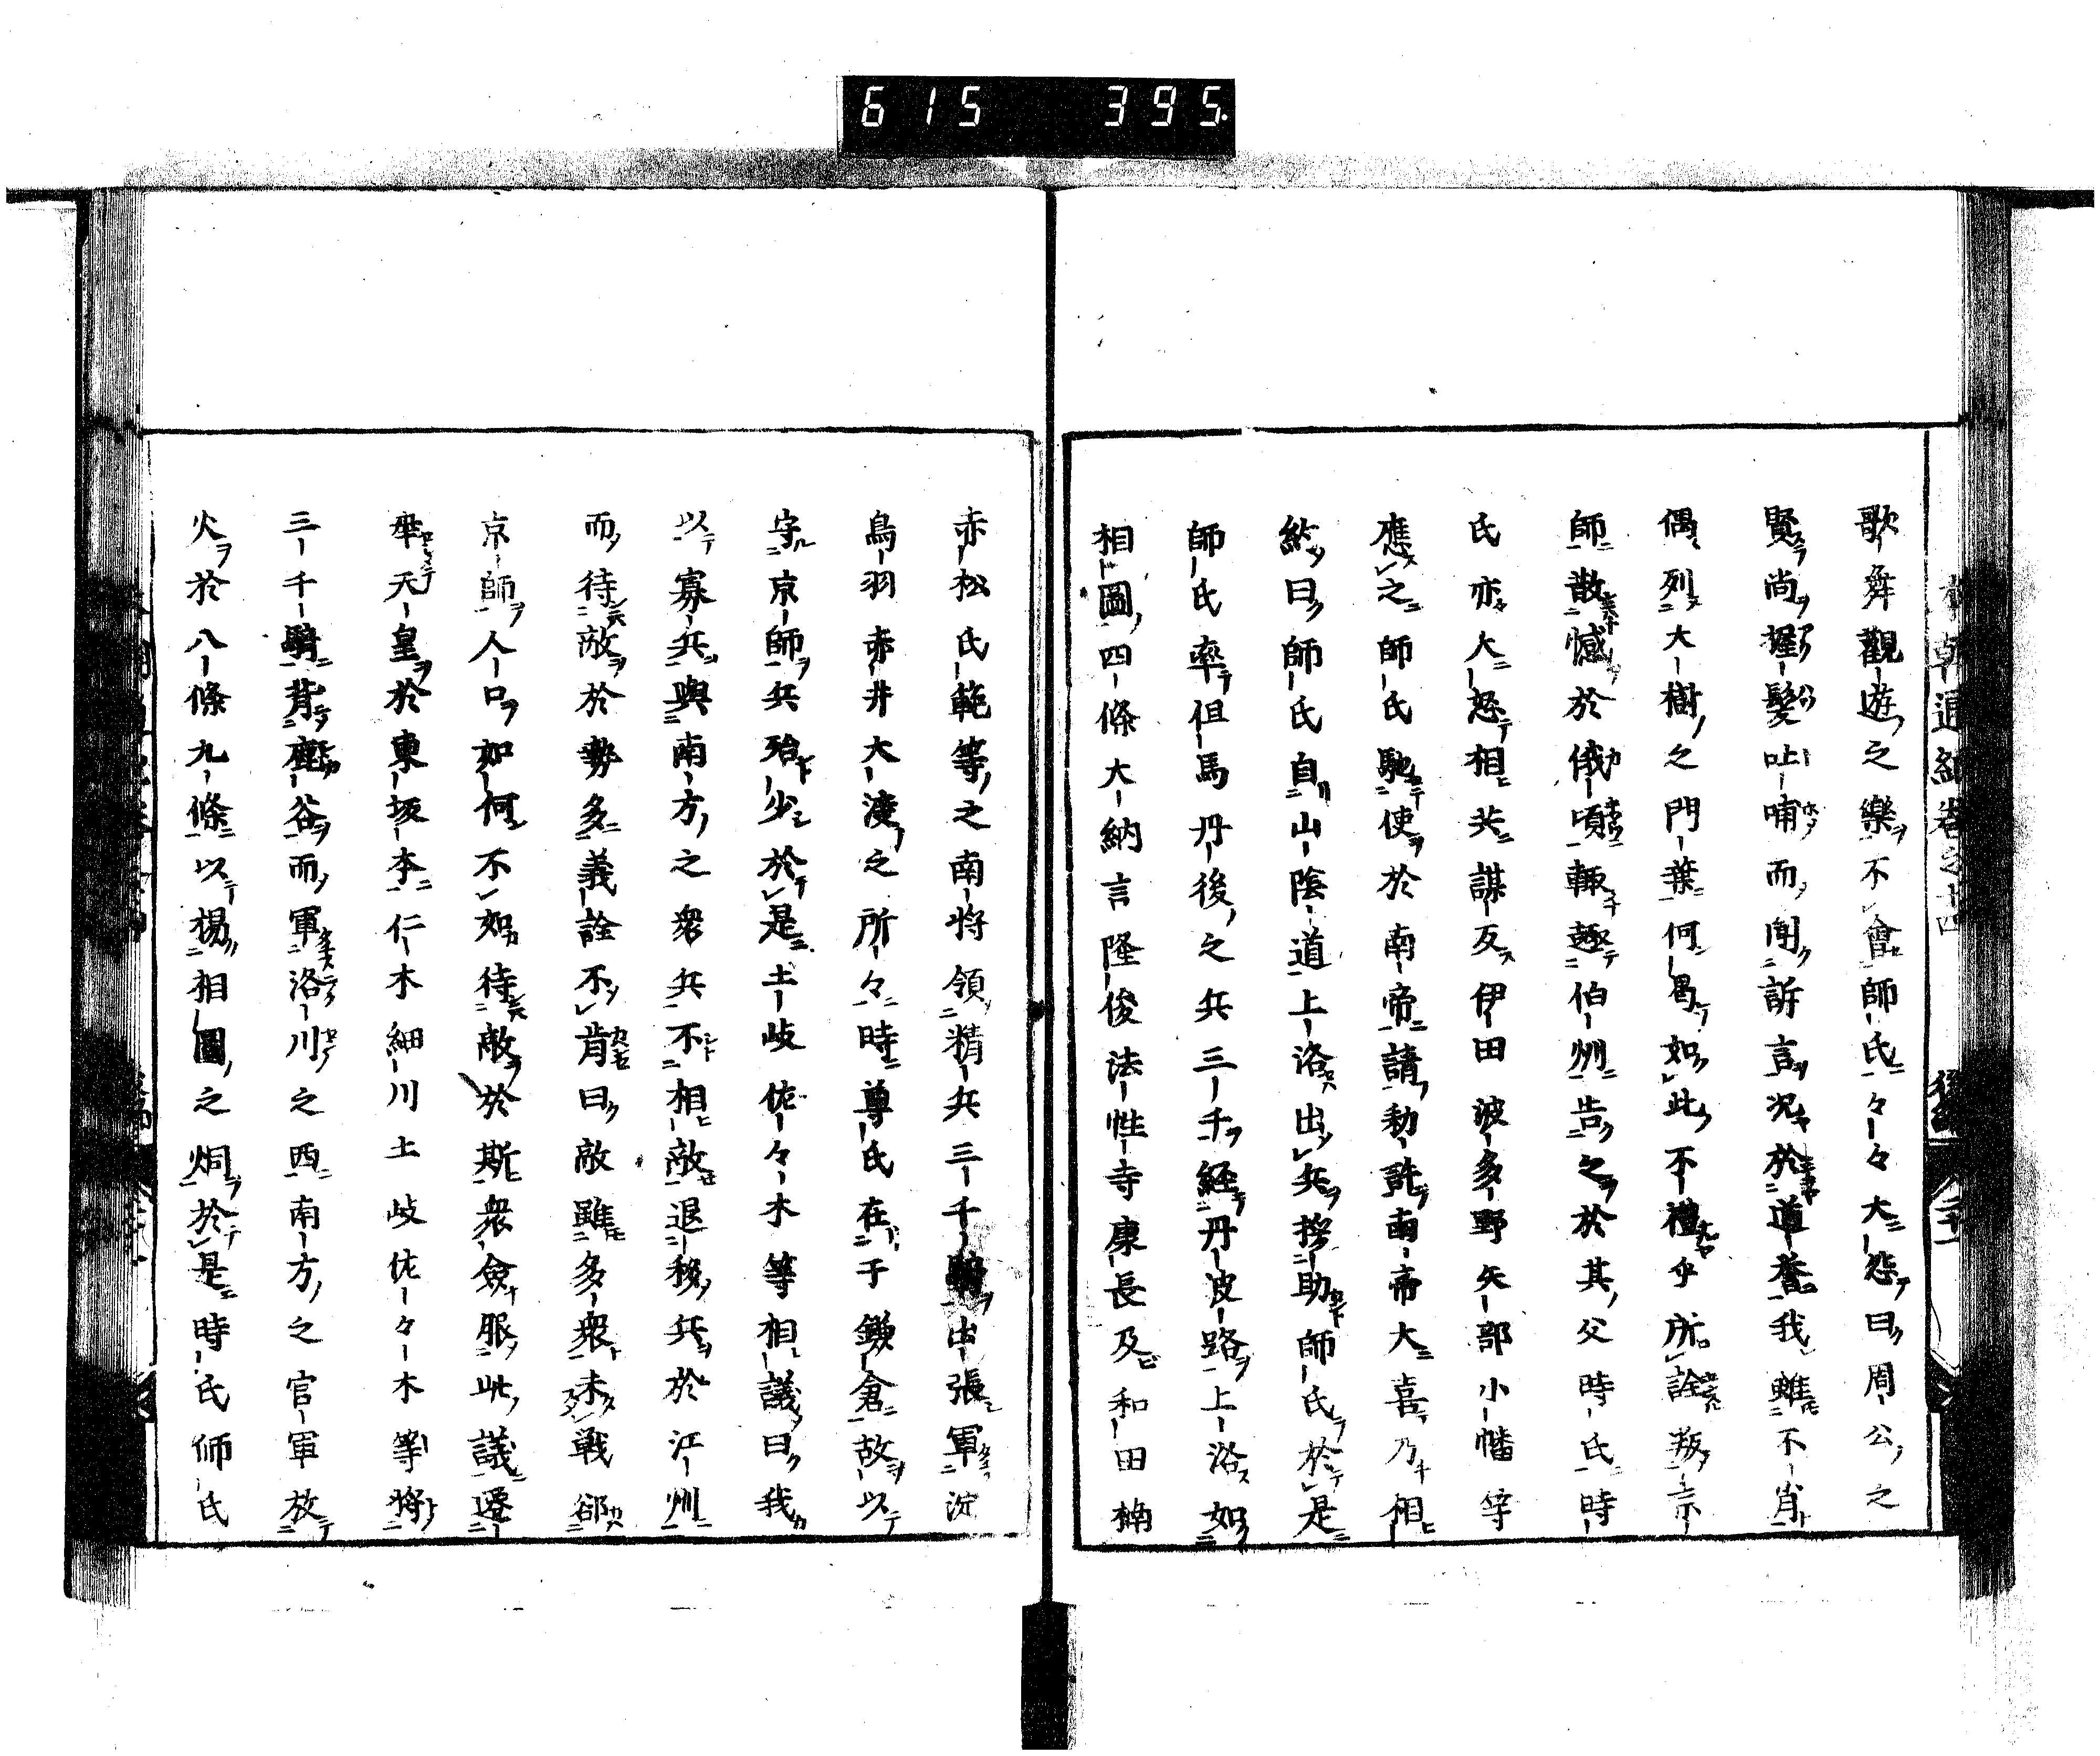 615 395.
歌舞觀遊之樂不會師氏々々大怨曰周公之
賢尚握髮吐哺而聞訴言況於道誉我雖不肖
偶列大樹之門葉何曷如此不禮乎所詮叛京
師散憾於俄頃輙趣伯州告之於其父時氏時
氏亦大怒相共謀反伊田波多野矢部小幡等
應之師氏馳使於南帝請勅許南帝大喜乃相
約曰師氏自山陰道上洛出兵援助師氏於是
師氏率但馬丹後之兵三千経丹波路上洛如
相圖四條大納言隆俊法性寺康長及和田楠
赤松氏範等之南将領精兵三千騎出張軍淀
鳥羽赤井大渡之所々時尊氏在于鎌倉故以
守京師兵殆少於是土岐佐々木等相議曰我
以寡兵與南方之衆兵不相敵退移兵於江州
而待敵於勢多義詮不肯曰敵雖多衆未戦郤
京師人口如何不如待敵於斯衆僉服此議遷
率天皇於東坂本仁木細川土岐佐々木等将
三千騎背鹿谷而軍洛川之西南方之官軍放
火於八條九條以揚相圖之烟於是時氏師氏